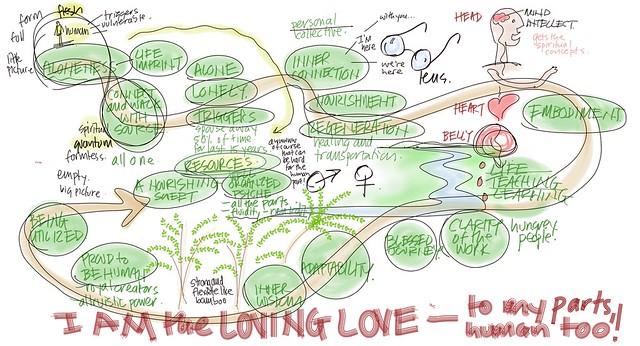 form
full
flesh
human
triggers
vulnerable
little
picture
ALONENESS
LIFE
IMPRINT
ALONE
LONELY
TRIGGERS
spouse away
50% of time
for last 15 years
RESOURCES
CONNECT
and WALK
WITH
SOURCE
spiritual
quantum
formless.
all one
empty.
big picture
personal
collective.
INNER
CONNECTION
with you...
I'm
here
we're
here
lens.
NOURISHMENT
REGENERATION
healing and
transportation.
a journey
of course
that can
be hard
for the
human
part!
A NOURISHING
SWEET
ORGANIZED
PSYCHE
all the parts
fluidity
HEAD
MIND
INTELLECT
gets the
spiritual
concepts.
HEART
BELLY
EMBODIMENT
LIFE
TEACHING
LEARNING
hungry
people!
CLARITY
of the
WORK
BLESSED
JOURNEY
ADAPTABILITY
INNER
WISDOM
strong and
flexible like
bamboo
BEING
UTILIZED
PROUD to
BE HUMAN
royal creators
altruistic power.
I AM the LOVING LOVE — to my parts,
human too!